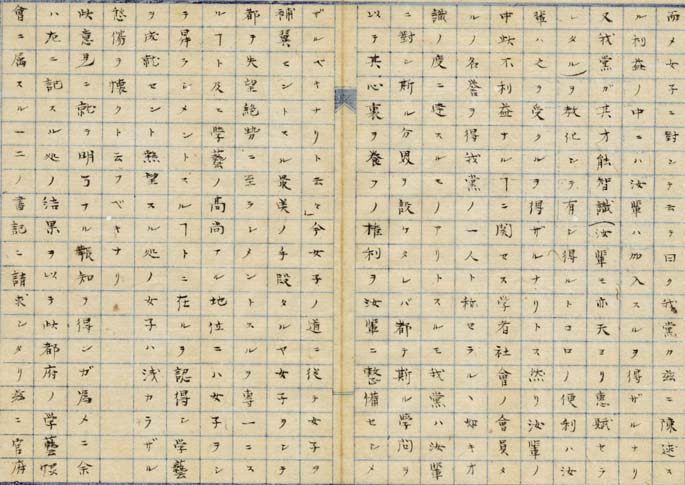 而メ女子ニ對シテ云テ曰ク我黨カ茲ニ陳述ス
ル利益ノ中ニハ汝輩ハ加入スルヲ得ザルナリ
又我黨ガ其才能智識(汝輩モ亦天ヨリ惠賦セラ
レタル)ヲ教化シテ有シ得ルトコロノ便利ハ汝
輩ハ之ヲ受クルヲ得ザルナリトス然リ汝輩ノ
中此不利益ナルヿニ関セス学者社會ノ會員タ
ルノ名誉ヲ得我黨ノ一人ト称セラルヽ如キオ
識ノ度ニ達スルモノアリトスルモ我黨ハ汝輩
ニ對シ斯ル分界ヲ設ケタレバ都テ斯ル學問ヲ
以テ其心裏ヲ養フノ権利ヲ汝輩ニ整備セシメ
ザルベキナリト云々」今女子ノ道ニ從テ女子ヲ
補翼セントスル最美ノ手段タルヤ女子ヲシテ
都テ失望絶勢ニ至ラシメントスルヲ専一ニス
ルヿト及ヒ學藝ノ髙尚アル地位ニハ女子ヲシ
テ昇ラシメントスルヿトニ在ルヲ認得シ学藝
ヲ成就セント熱望スル処ノ女子ハ浅カラザル
愁傷ヲ懐クト云フベキナリ
此意見ニ就テ明了ナル報知ヲ得ンガ爲メニ余
ハ左ニ記スル処ノ結果ヲ以テ此都府ノ学藝
會ニ属スル一二ノ書記ニ請求シタリ茲ニ官府